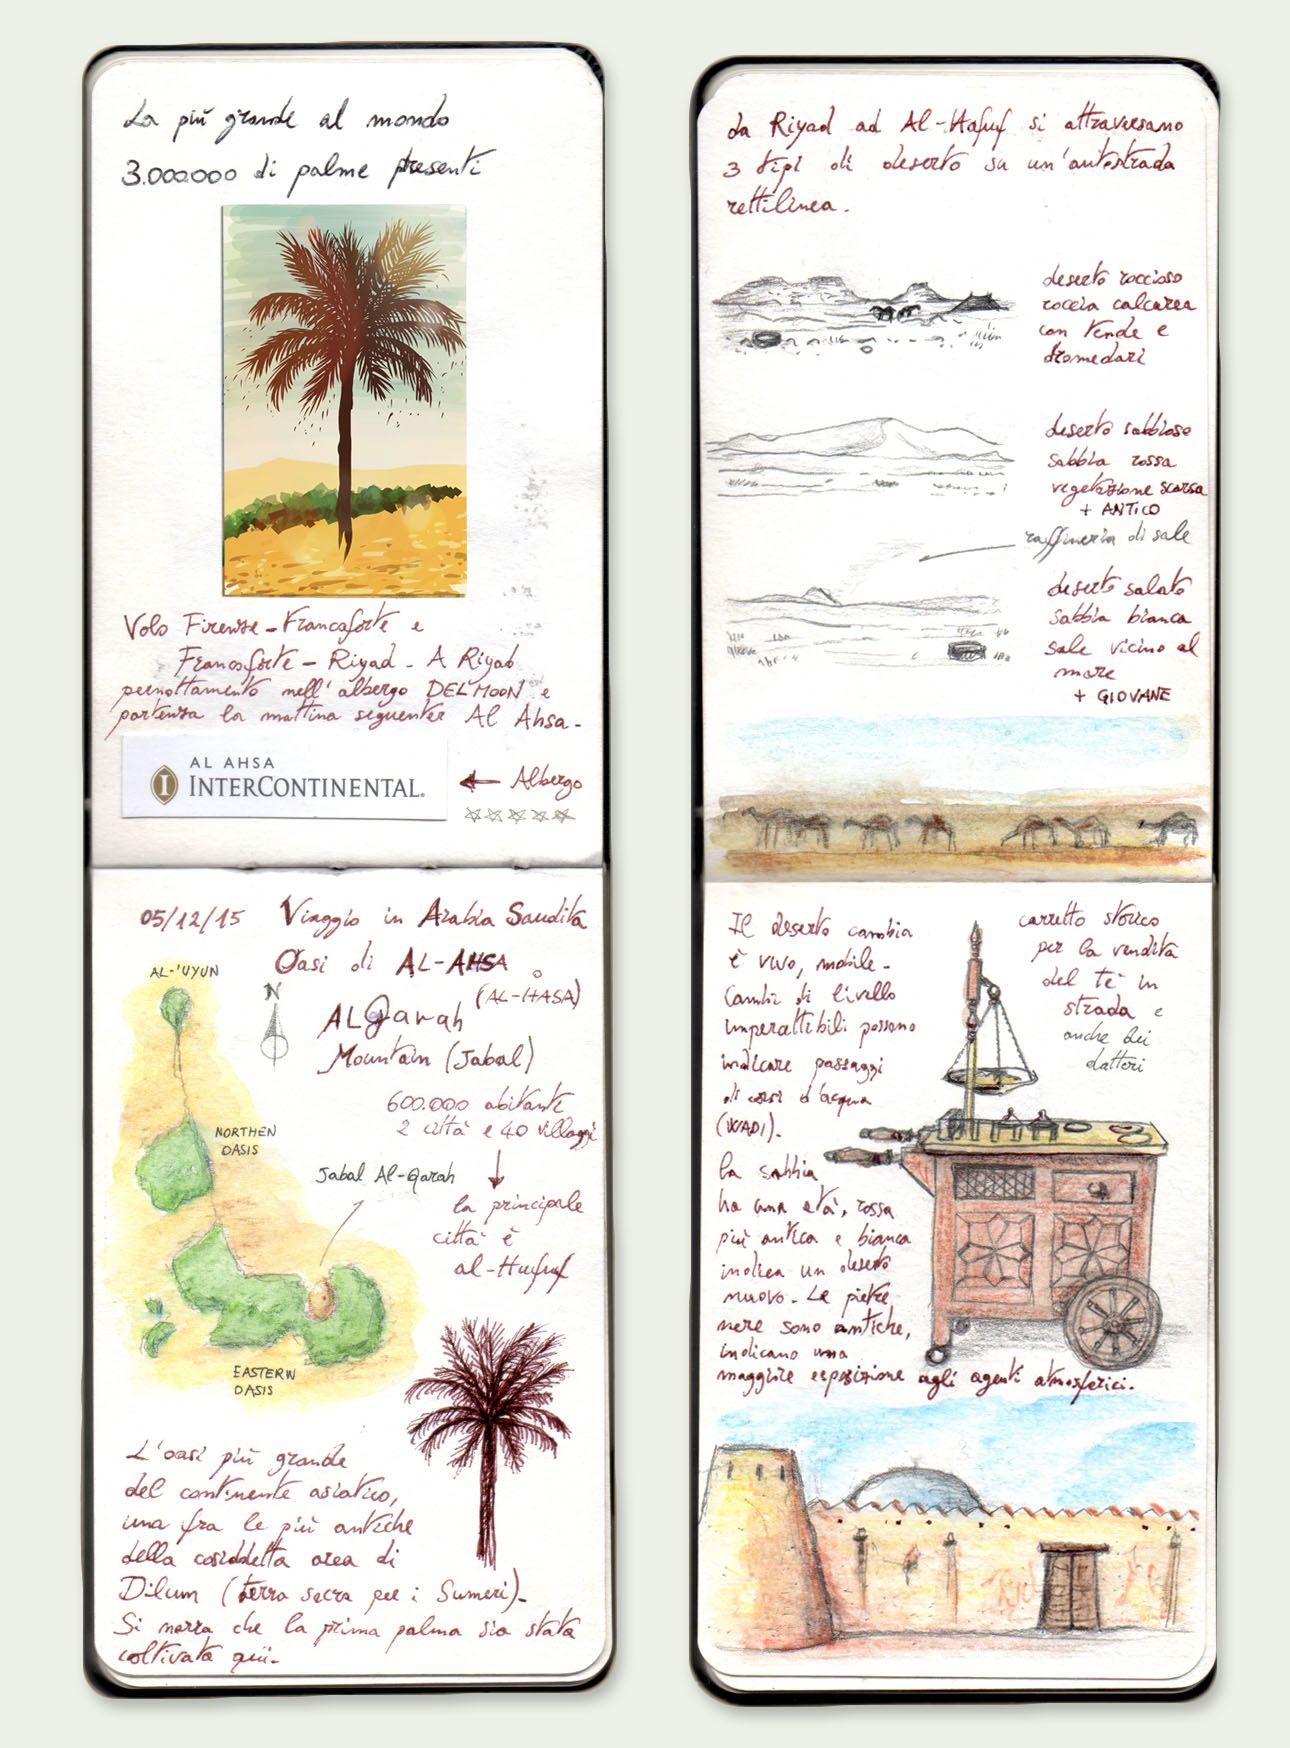 La più grande al mondo
3.000.000 di palme presenti
Volo Firenze - Francoforte e
Francoforte - Riyad. A Riyad
pernottamento nell'albergo DEL MOON e
partenza la mattina seguente Al Ahsa.
AL AHSA
INTERCONTINENTAL.
← Albergo
05/12/15 Viaggio in Arabia Saudita
Oasi di AL-AHSA
(AL-HASA)
AL-'UYUN
N
ALQarah
Mountain (Jabal)
600.000 abitanti
2 città e 40 villaggi
NORTHEN
OASIS
Jabal Al-Qarah
la principale
città è
al-Hufuf
EASTERN
OASIS
L'oasi più grande
del continente asiatico,
una fra le più antiche
della cosiddetta area di
Dilum (terra sacra per i Sumeri).
Si narra che la prima palma sia stata
coltivata qui.
da Riyad ad Al-Hafuf si attraversano
3 tipi di deserto su un'autostrada
rettilinea.
deserto roccioso
roccia calcarea
con tende e
dromedari
deserto sabbioso
sabbia rossa
vegetazione scarsa
+ ANTICO
raffineria di sale
deserto salato
sabbia bianca
sale vicino al
mare
+ GIOVANE
Il deserto cambia
è vivo, mobile.
Cambi di livello
impercettibili possono
indicare passaggi
di corsi d'acqua
(WADI).
la sabbia
ha una età, rossa
più antica e bianca
indica un deserto
nuovo. Le pietre
nere sono antiche,
indicano una
maggiore esposizione agli agenti atmosferici.
carretto storico
per la vendita
del tè in
strada e
anche dei
datteri